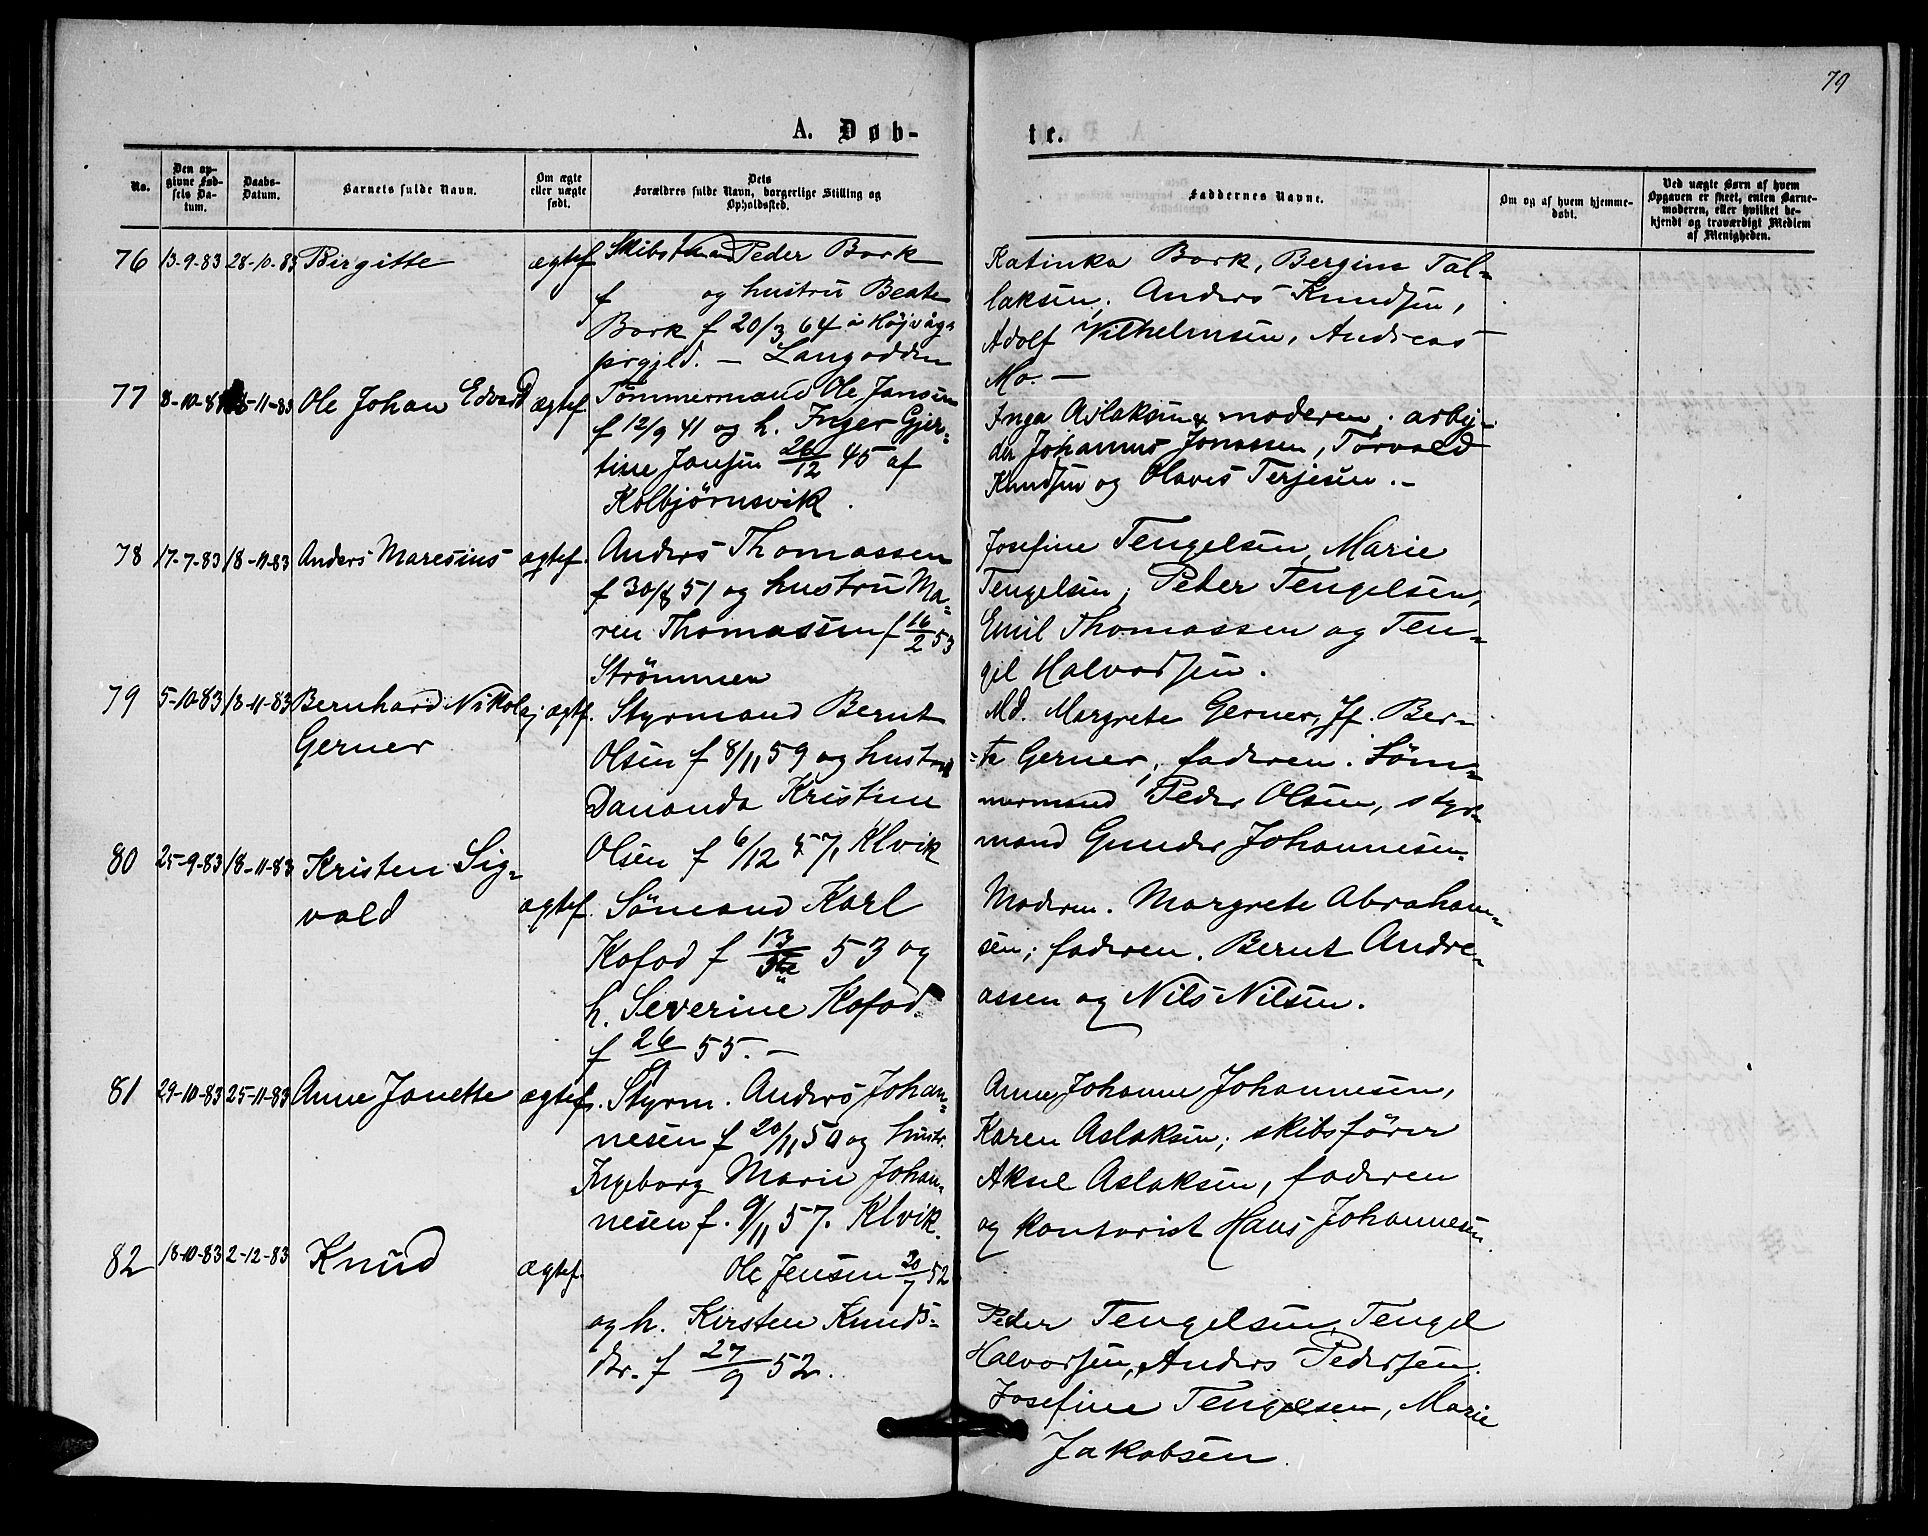 79
A. Døb-
te.
No.
Den op-
givne Fød-
sels Da-
tum.
Daabs-
Datum.
Barnets fulde Navn.
Om ægte
eller uægte
født.
Dets
Forældres fulde Navn, borgerlige Stilling og
Opholdssted.
Faddernes Navne.
Om og af hvem hjemme-
døbt.
Ved uægte Børn af hvem
Opgaven er skeet, enten Barne-
moderen, eller hvilket be-
kjendt og troværdigt Medlem
af Menigheden.
76 13-9-83 28-10-83 Birgitte ægtef. Skibs Peder Bork
f og hustru Beate
Bork f 20/3 64 i Højvåg
prgjld. – Langodden
Katinka Bork, Bergine Tal-
laksen. Anders Knudsen,
Adolf Vilhelmsen, Andreas
Mo. –
77 8-10-83 -11-83 Ole Johan Edvard ægtef. Tømmermand Ole Jansen
f 12/9 41 og h. Inger Gjer-
tine Jansen 26/12 45 af
Kolbjørnsvik.
Inga Aslaksen & moderen. arbej-
der Johannes Jonassen, Torvald
Knudsen og Olaves Terjesen. –
78 17-7-83 18-11-83 Anders Maresius ægtef. Anders Thomassen
f 30/8 51 og hustru Ma-
ren Thomassen f 16/2 53
Strömmen
Josefine Tengelsen, Marie
Tengelsen; Peder Tengelsen,
Emil Thomassen og Ten-
gel Halvorsen.
79 5-10-83 18-11-83 Bernhard Nikolaj ægtf. Styrmand Bernt
Gerner
Olsen f 8/11 59 og hustru
Dananda Kristine
Olsen f 6/12 57, Klvik
Md. Margrete Gerner, Jf. Ber-
te Gerner, faderen. Töm-
mermand Peder Olsen, styr-
mand Gunder Johannesen.
80 25-9-83 18-11-83 Kristen Sig-
vald
ægtef. Sömand Karl
Kofod f 13/ 53 og
h. Severine Kofod
f 26/9 55. –
Moderen. Margrete Abraham-
sen; faderen. Bernt Andre-
assen og Nils Nilsen.
81 29-10-83 25-11-83 Anne Janette ægtef. Styrm. Anders Johan-
nesen f 20/11 50 og hustr.
Ingeborg Marie Johan-
nesen f. 9/11 57. Klvik.
Anne Johanne Johannesen,
Karen Aslaksen; skibsfører
Aksel Aslaksen, faderen
og kontorist Hans Johannesen.
82 18-10-83 2-12-83 Knud ægtef. Ole Jensen 20/7 52
og h. Kirsten Knuds-
dtr. f 27/9 52.
Peder Tengelsen, Tengel
Halvorsen, Anders Pedersen.
Josefine Tengelsen, Marie
Jakobsen.